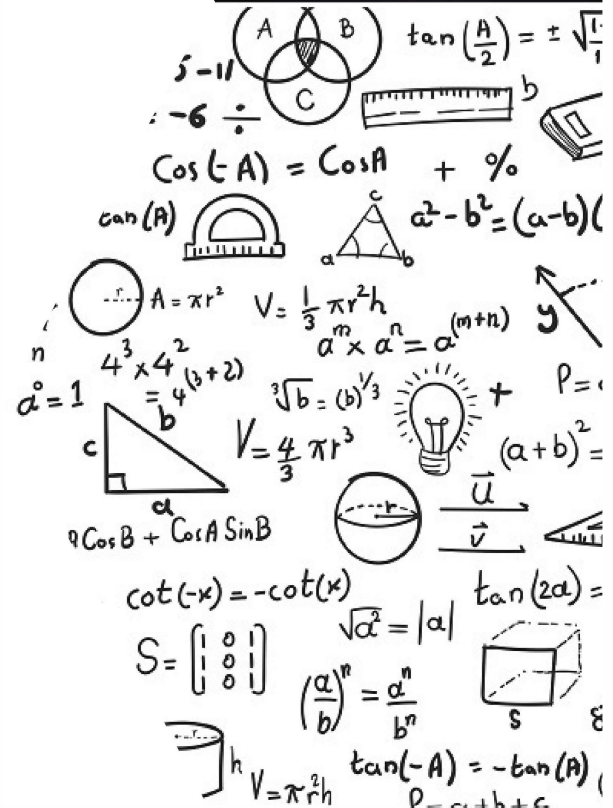 A B
C
tan(A/2) = ±
5 -11
-6 ÷
b
Cos(-A) = CosA + %
tan(A)
c
a b
a² - b² = (a-b)(
r A = πr²
V = 1/3 πr²h
y
aᵐ × aⁿ = a⁽ᵐ⁺ⁿ⁾
n
4³ × 4²
= 4⁽³⁺²⁾
a⁰ = 1
³√b = (b)^1/3
+
P =
b
c
a
V = 4/3 πr³
(a+b)² =
r
u⃗
v⃗
CosB + CosA SinB
cot(-x) = -cot(x)
tan(2a) =
√a² = |a|
S = [1 0 1
1 0 1
1 0 1]
(a/b)ⁿ = aⁿ/bⁿ
s
r
h
V = πr²h
tan(-A) = -tan(A)
P = a + b + c